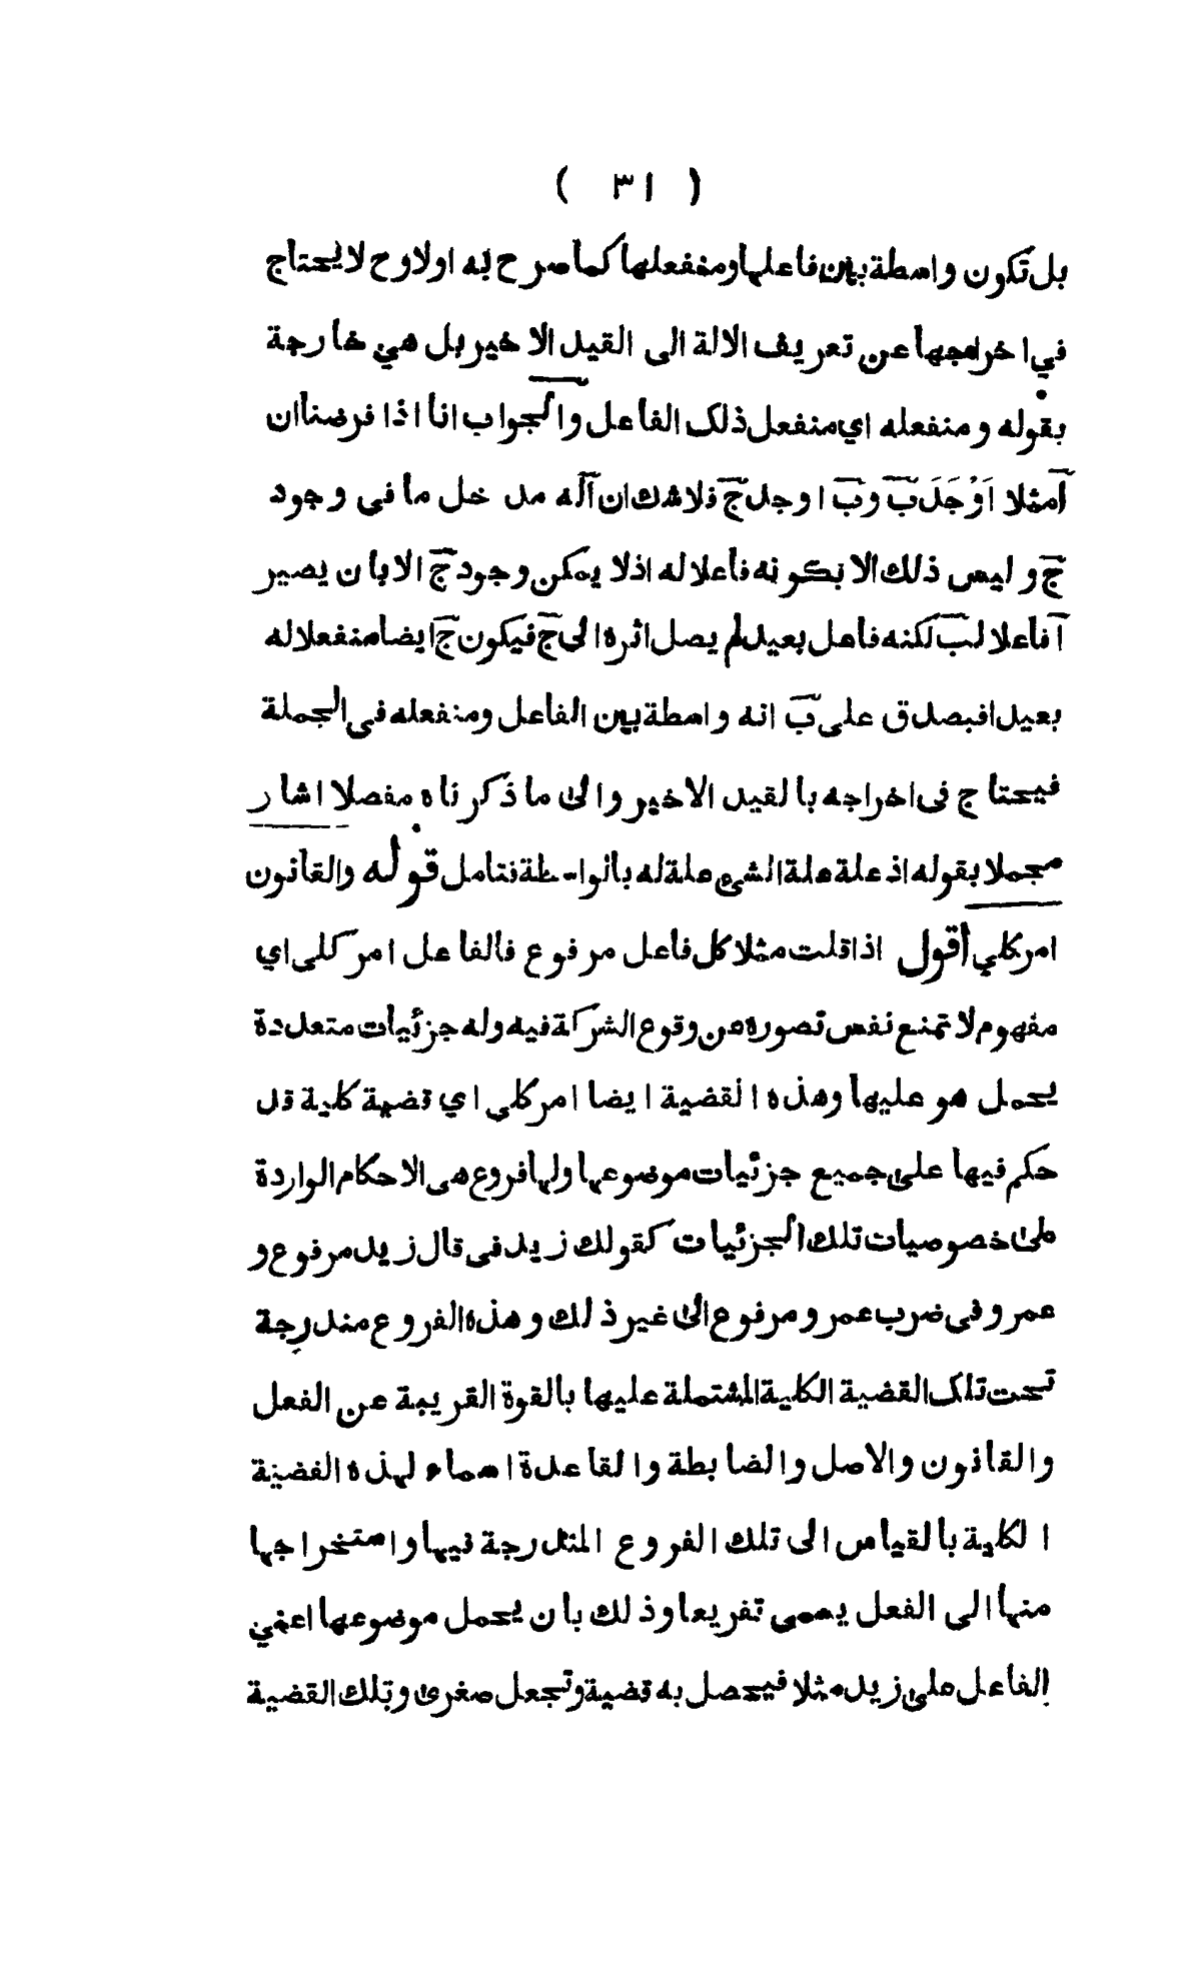 ( ٣١ )
بل تكون واسطة بين فاعلها ومنفعلها كما صرح به اولا وح لا يحتاج
في اخراجها عن تعريف الالة الى القيد الاخير بل هي خارجة
بقوله ومنفعله اي منفعل ذلك الفاعل والجواب انا اذا فرضنا ان
آ مثلا اَوْجَدَ بَ وبَ اوجد جَ فلا شك ان آ له مدخل ما فى وجود
جَ وليس ذلك الا بكونه فاعلا له اذ لا يمكن وجود جَ الا بان يصير
آ فاعلا لبَ لكنه فاعل بعيد لم يصل اثره الى جَ فيكون جَ ايضا منفعلا له
بعيدا فيصدق على بَ انه واسطة بين الفاعل ومنفعله فى الجملة
فيحتاج فى اخراجه بالقيد الاخير والى ما ذكرناه مفصلا اشار
مجملا بقوله اذ علة علة الشيء علة له بالواسطة فتامل قوله والقانون
امر كلي أقول اذا قلت مثلا كل فاعل مرفوع فالفاعل امر كلى اي
مفهوم لا تمنع نفس تصوره عن وقوع الشركة فيه وله جزئيات متعددة
يحمل هو عليها وهذه القضية ايضا امر كلى اي قضية كلية قد
حكم فيها على جميع جزئيات موضوعها ولها فروع هى الاحكام الواردة
على خصوصيات تلك الجزئيات كقولك زيد فى قال زيد مرفوع و
عمرو فى ضرب عمرو مرفوع الى غير ذلك وهذه الفروع مندرجة
تحت تلك القضية الكلية المشتملة عليها بالقوة القريبة عن الفعل
والقانون والاصل والضابطة والقاعدة اسماء لهذه القضية
الكلية بالقياس الى تلك الفروع المندرجة فيها واستخراجها
منها الى الفعل يسمى تفريعا وذلك بان يحمل موضوعها اعني
الفاعل على زيد مثلا فيحصل به قضية وتجعل صغرى وتلك القضية